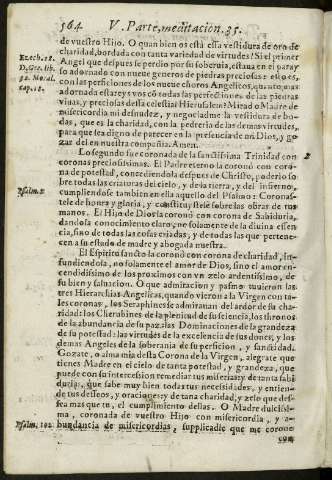 564. V. Parte, meditacion. 35.
de vuestro Hijo. O quan bien os està essa vestidura de oro de
charidad, bordada con tanta variedad de virtudes! Si el primer
Ezech. 28.
D. Gre. lib.
32. Moral.
cap. 18.
Angel que despues se perdio por su soberuia, estaua en el parayso
adornado con nueue generos de piedras preciosas: esto es,
con las perfeciones de los nueue choros Angelicos, quanto mas
adornada estareys vos cõ todas las perfecciones de las piedras
viuas, y preciosas dessa celestial Hierusalem? Mirad o Madre de
misericordia mi desnudez, y negociadme la vestidura de bodas,
que es la charidad, con la pedreria de las demas virtudes,
para que sea digno de parecer en la presencia de mi Dios, y gozar
del en nuestra compañia. Amen.
Lo segundo fue coronada de la sanctissima Trinidad con
coronas preciosissimas. El Padre eterno la coronò con corona
de potestad, concediendola despues de Christo, poderio sobre
todas las criaturas del cielo, y de la tierra, y del infierno,
Psalm. 8
cumpliendose tambien en ella aquello del Psalmo: Coronaste
de honra y gloria, y constituystele sobre las obras de tus
manos. El Hijo de Dios la coronò con corona de Sabiduria,
dandola conocimiento claro, no solamente de la diuina essencia,
sino de todas las cosas criadas, y de todas las que pertenecen
a su estado de madre y abogada nuestra.
El Espiritu sancto la coronò con corona de charidad, infundiendola,
no solamente el amor de Dios, sino el amor encendidissimo
de los proximos con vn zelo ardentissimo, de
su bien y saluacion. O que admiracion y pasmo tuuieron las
tres Hierarchias Angelicas, quando vieron a la Virgen con tales
coronas, los Seraphines se admirauan del ardor de su charidad:
los Cherubines de la plenitud de su sciencia, los thronos
de la abundancia de su paz, las Dominaciones de la grandeza
de su potestad: las virtudes de la excelencia de sus dones, y los
demas Angeles de la soberania de su perficion, y sanctidad.
Gozate, o alma mia desta Corona de la Virgen, alegrate que
tienes Madre en el cielo de tanta potestad, y grandeza, que
puede con su intercession remediar tus miserias: y de tanta sabiduria,
que sabe muy bien todas tus necessidades, y entiende
tus desseos, y oraciones: y de tana charidad, y zelo que dessea
mas que tu, el cumplimiento dellas. O Madre dulcissima,
coronada de vuestro Hijo con misericordia, y a-
Psalm. 102
bundancia de misericordias, supplicadle que me corone
con